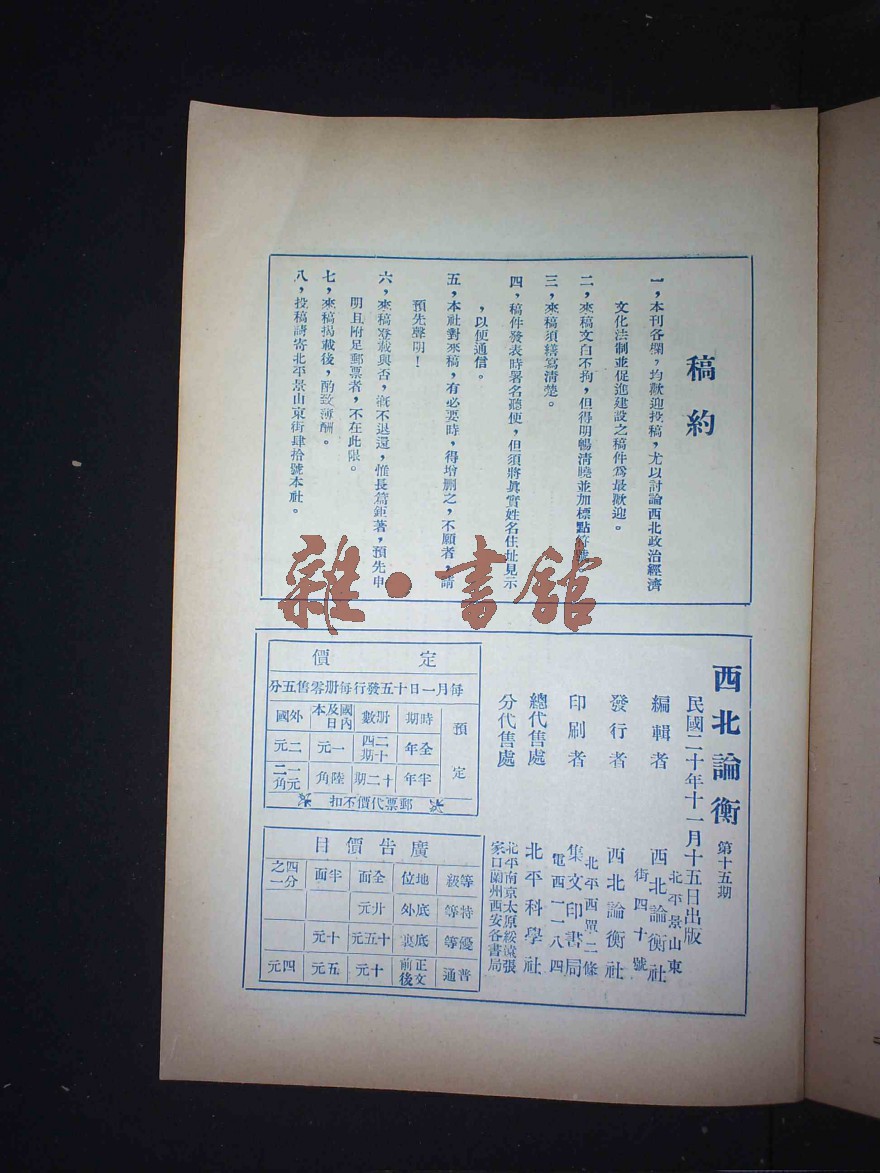 稿約
一，本刊各欄，均歡迎投稿，尤以討論西北政治經濟
文化法制並促進建設之稿件爲最歡迎。
二，來稿文白不拘，但得明暢清曉並加標點符號
三，來稿須繕寫清楚。
四，稿件發表時署名聽便，但須將眞實姓名住址見示
，以便通信。
五，本社對來稿，有必要時，得增删之，不願者，請
預先聲明！
六，來稿登載與否，概不退還，惟長篇鉅著，預先申
明且附足郵票者，不在此限。
七，來稿揭載後，酌致薄酬。
八，投稿請寄北平景山東街肆拾號本社。
雜·書館
西北論衡 第十五期
民國二十年十一月十五日出版
編輯者 西北論衡社
北平景山東
街四十號
發行者 西北論衡社
印刷者 集文印書局
北平西單二條
電西二一八四
總代售處 北平科學社
分代售處 北平南京太原綏遠張
家口蘭州西安各書局
定價
每月一日十五發行每册零售五分
預定 時期 册數 國內及日本 國外
全年 二十四期 一元 二元
半年 十二期 陸角 一元二角
郵票代價不扣
廣告價目
等級 地位 全面 半面 四分之一
特等 底外 廿元
優等 底裏 十五元 十元
普通 正文前後 十元 五元 四元